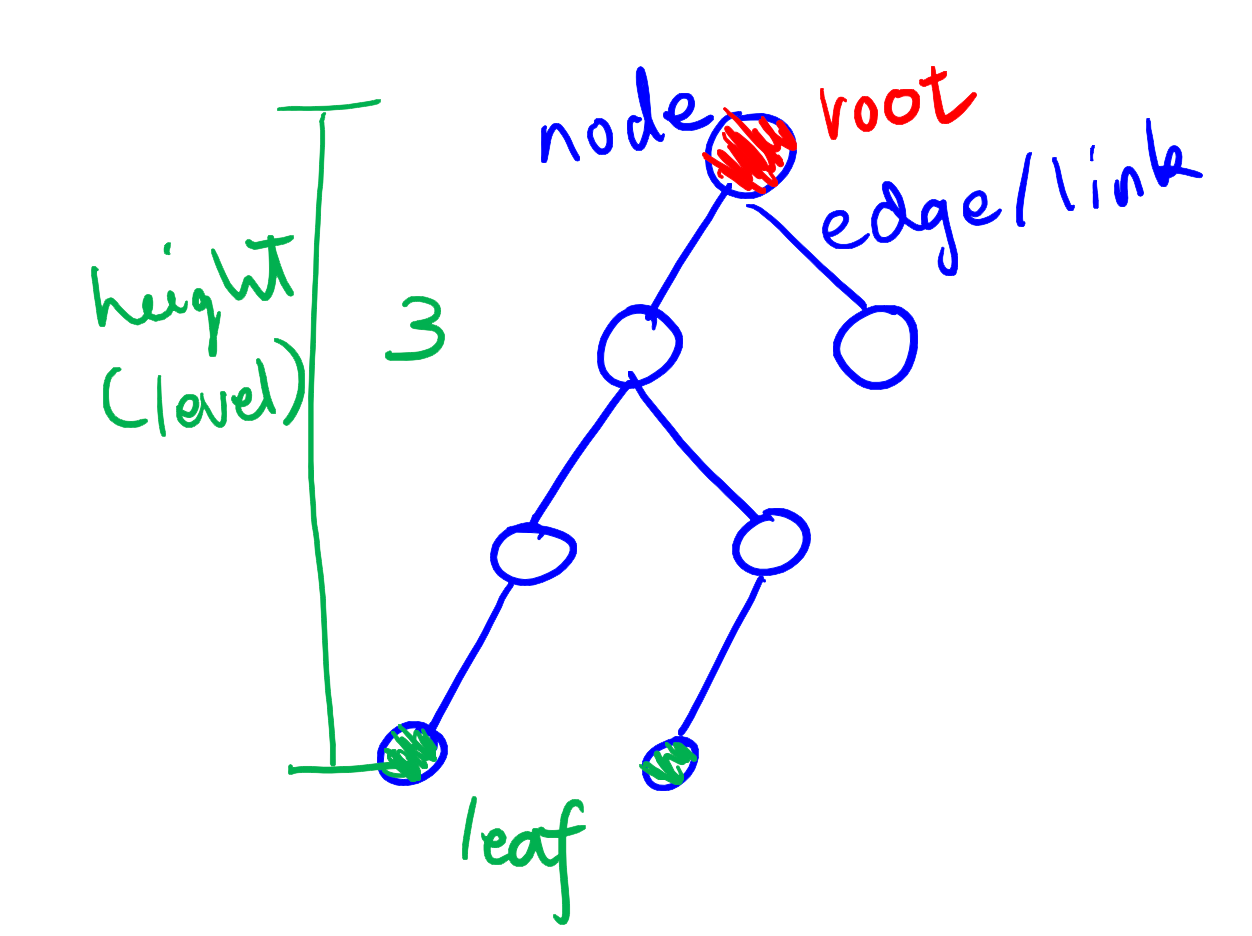 node
root
edge/link
height
(level)
3
leaf